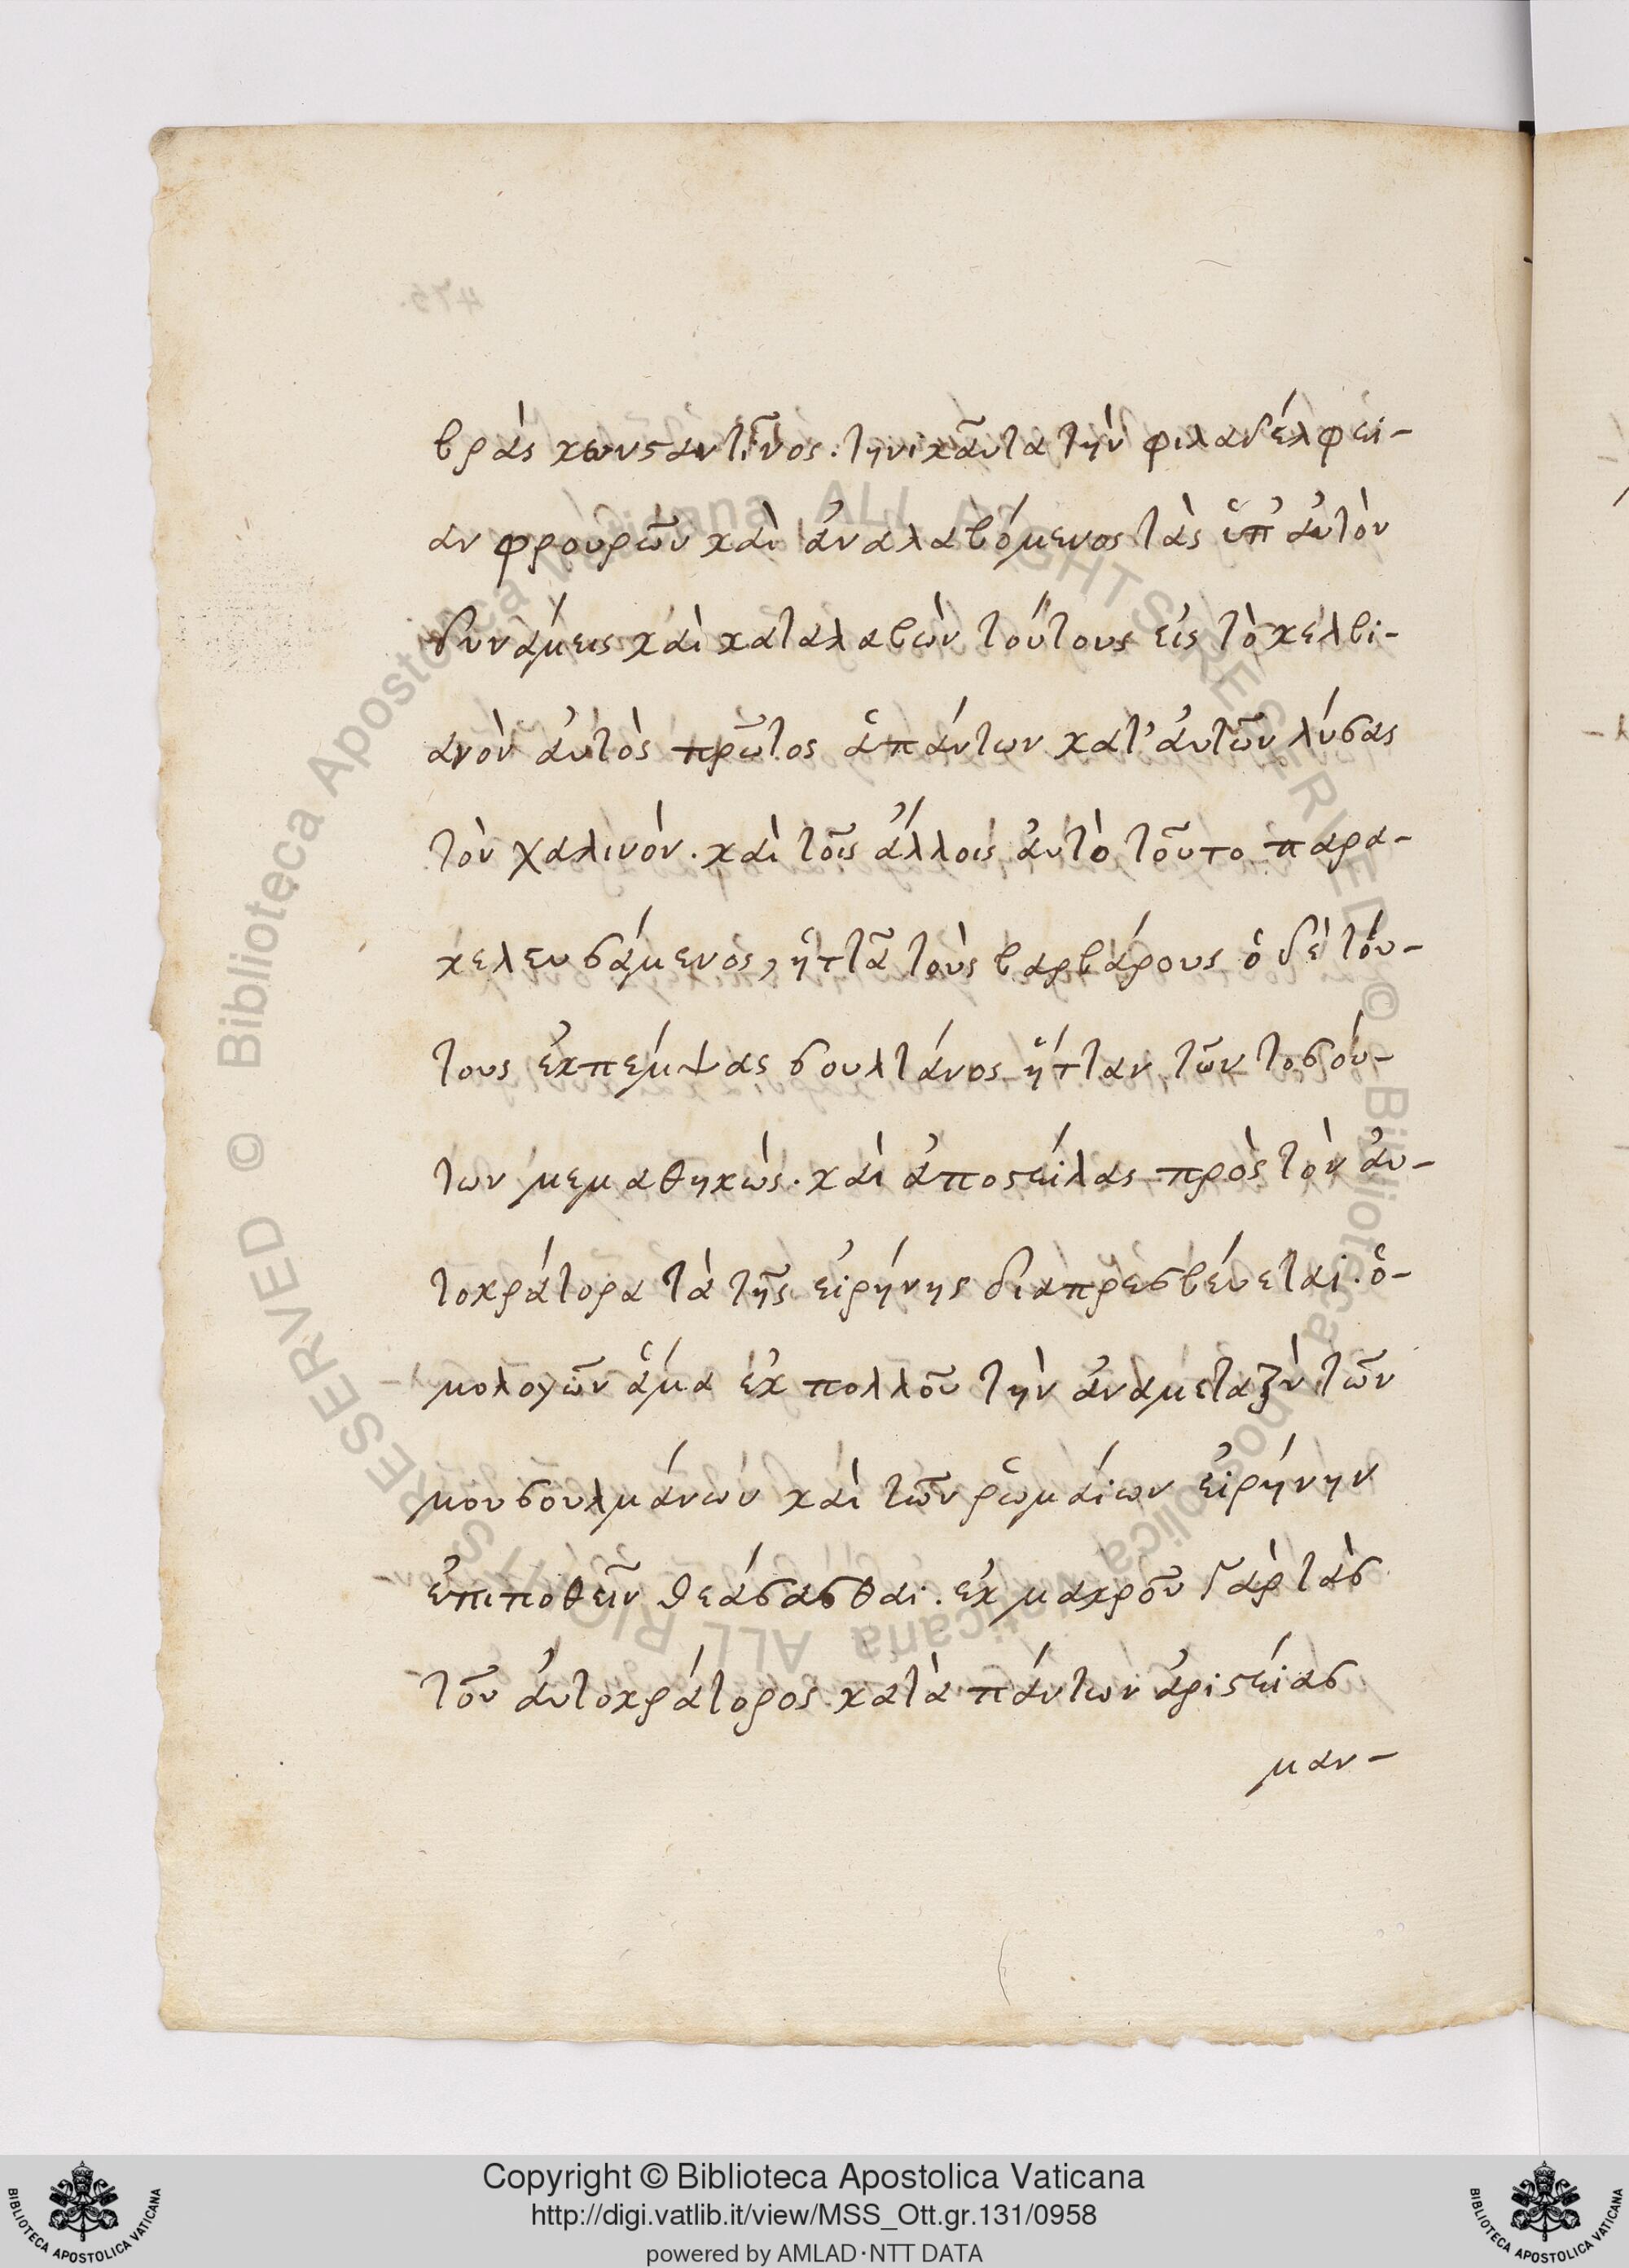 βρᾶς κωνσαντῖνος: τηνικᾶυτα τὴν φιλαδέλφει-
αν φρουρῶν κὰι ἀναλαβόμενος τὰς ὑπ' ἀυτὸν
δυνάμεις κὰι καταλαβὼν τούτους εἰς τὸ κελβι-
ανὸν ἀυτὸς πρῶτος ἁπάντων κατ' ἀυτῶν λύσας
τὸν χαλινόν. κὰι τοῖς ἄλλοις ἀυτὸ τοῦτο παρα-
κελευσάμενος, ἡττᾶ τοὺς βαρβάρους ὁ δὲ τόυ-
τους ἐκπέμψας σουλτάνος ἥτταν τῶν τοσόυ-
των μεμαθηκώς. κὰι ἀποστείλας πρὸς τὸν ἀυ-
τοκράτορα τὰ τῆς εἰρήνης διαπρεσβέυεται. ὁ-
μολογῶν ἅμα ἐκ πολλοῦ τὴν ἀναμεταξὺ τῶν
μουσουλμάνων κὰι τῶν ῥωμάιων εἰρήνην
ἐπιποθεῖν θεάσασθαι. ἐκ μακροῦ γὰρ τὰς
τοῦ ἀυτοκράτορος κατὰ πάντων ἀριστείας
μαν-
Copyright © Biblioteca Apostolica Vaticana
http://digi.vatlib.it/view/MSS_Ott.gr.131/0958
powered by AMLAD·NTT DATA
BIBLIOTECA APOSTOLICA VATICANA
BIBLIOTECA APOSTOLICA VATICANA